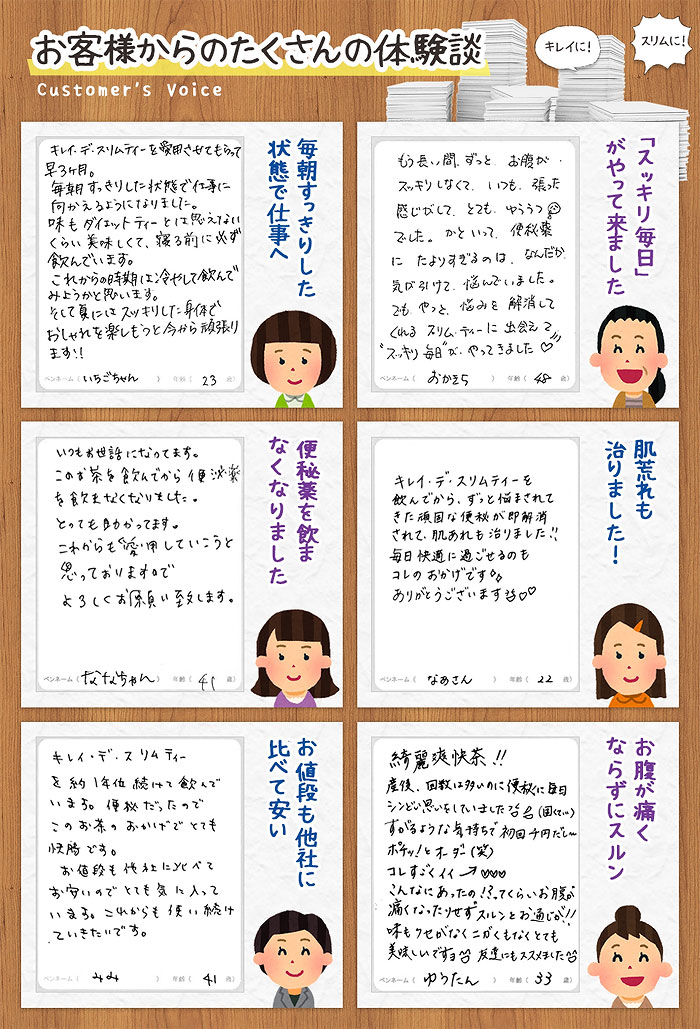 お客様からのたくさんの体験談
Customer's Voice
キレイに!
スリムに!
毎朝すっきりした
状態で仕事へ
キレイ・デ・スリムティーを愛用させてもらって
早3ヶ月。
毎朝すっきりした状態で仕事に
向かえるようになりました。
味もダイエットティーとは思えない
くらい美味しくて、寝る前に必ず
飲んでいます。
これからの時期は冷やして飲んで
みようかと思います。
そして夏にはスッキリした身体で
おしゃれを楽しもうと今から頑張り
ます!!
ペンネーム(いちごちゃん) 年齢(23歳)
「スッキリ毎日」
がやって来ました
もう長い間、ずっと、お腹が
スッキリしなくて、いつも、張った
感じがして、とても、ゆううつ
でした。かといって、便秘薬
に たよりすぎるのは、なんだか
気が引けて、悩んでいました。
でも、やっと、悩みを解消して
くれる スリム・ティーに出会えて
"スッキリ毎日"が、やってきました♡
ペンネーム(おかきら) 年齢(48歳)
便秘薬を飲ま
なくなりました
いつもお世話になってます。
このお茶を飲んでから便泌薬
を飲まなくなりました。
とっても助かってます。
これからも愛用していこうと
思っておりますので
よろしくお願い致します。
ペンネーム(ななちゃん) 年齢(41歳)
肌荒れも
治りました!
キレイ・デ・スリムティーを
飲んでから、ずっと悩まされて
きた頑固な便秘が即解消
されて、肌あれも治りました!!
毎日快適に過ごせるのも
コレのおかげです
ありがとうございます♡♡
ペンネーム(なあさん) 年齢(22歳)
お値段も他社に
比べて安い
キレイ・デ・スリムティー
を約1年位続けて飲んで
います。便秘だったので
このお茶のおかげでとても
快腸です。
お値段も他社に比べて
お安いのでとても気に入って
います。これからも使い続け
ていきたいです。
ペンネーム(みみ) 年齢(41歳)
お腹が痛く
ならずにスルン
綺麗爽快茶!!
産後、回数は多いのに便秘に毎日
シンどい思いをしていました
すがるような気持ちで初回千円だし〜
ポチッ!とオーダー(笑)
コレすごくイイ→♡♡♡
こんなにあったの!?ってくらいお腹が
痛くなったりせずスルンとお通じが!!
味もクセがなくニガくもなくとても
美味しいですヨ 友達にもススメました
ペンネーム(ゆうたん) 年齢(33歳)